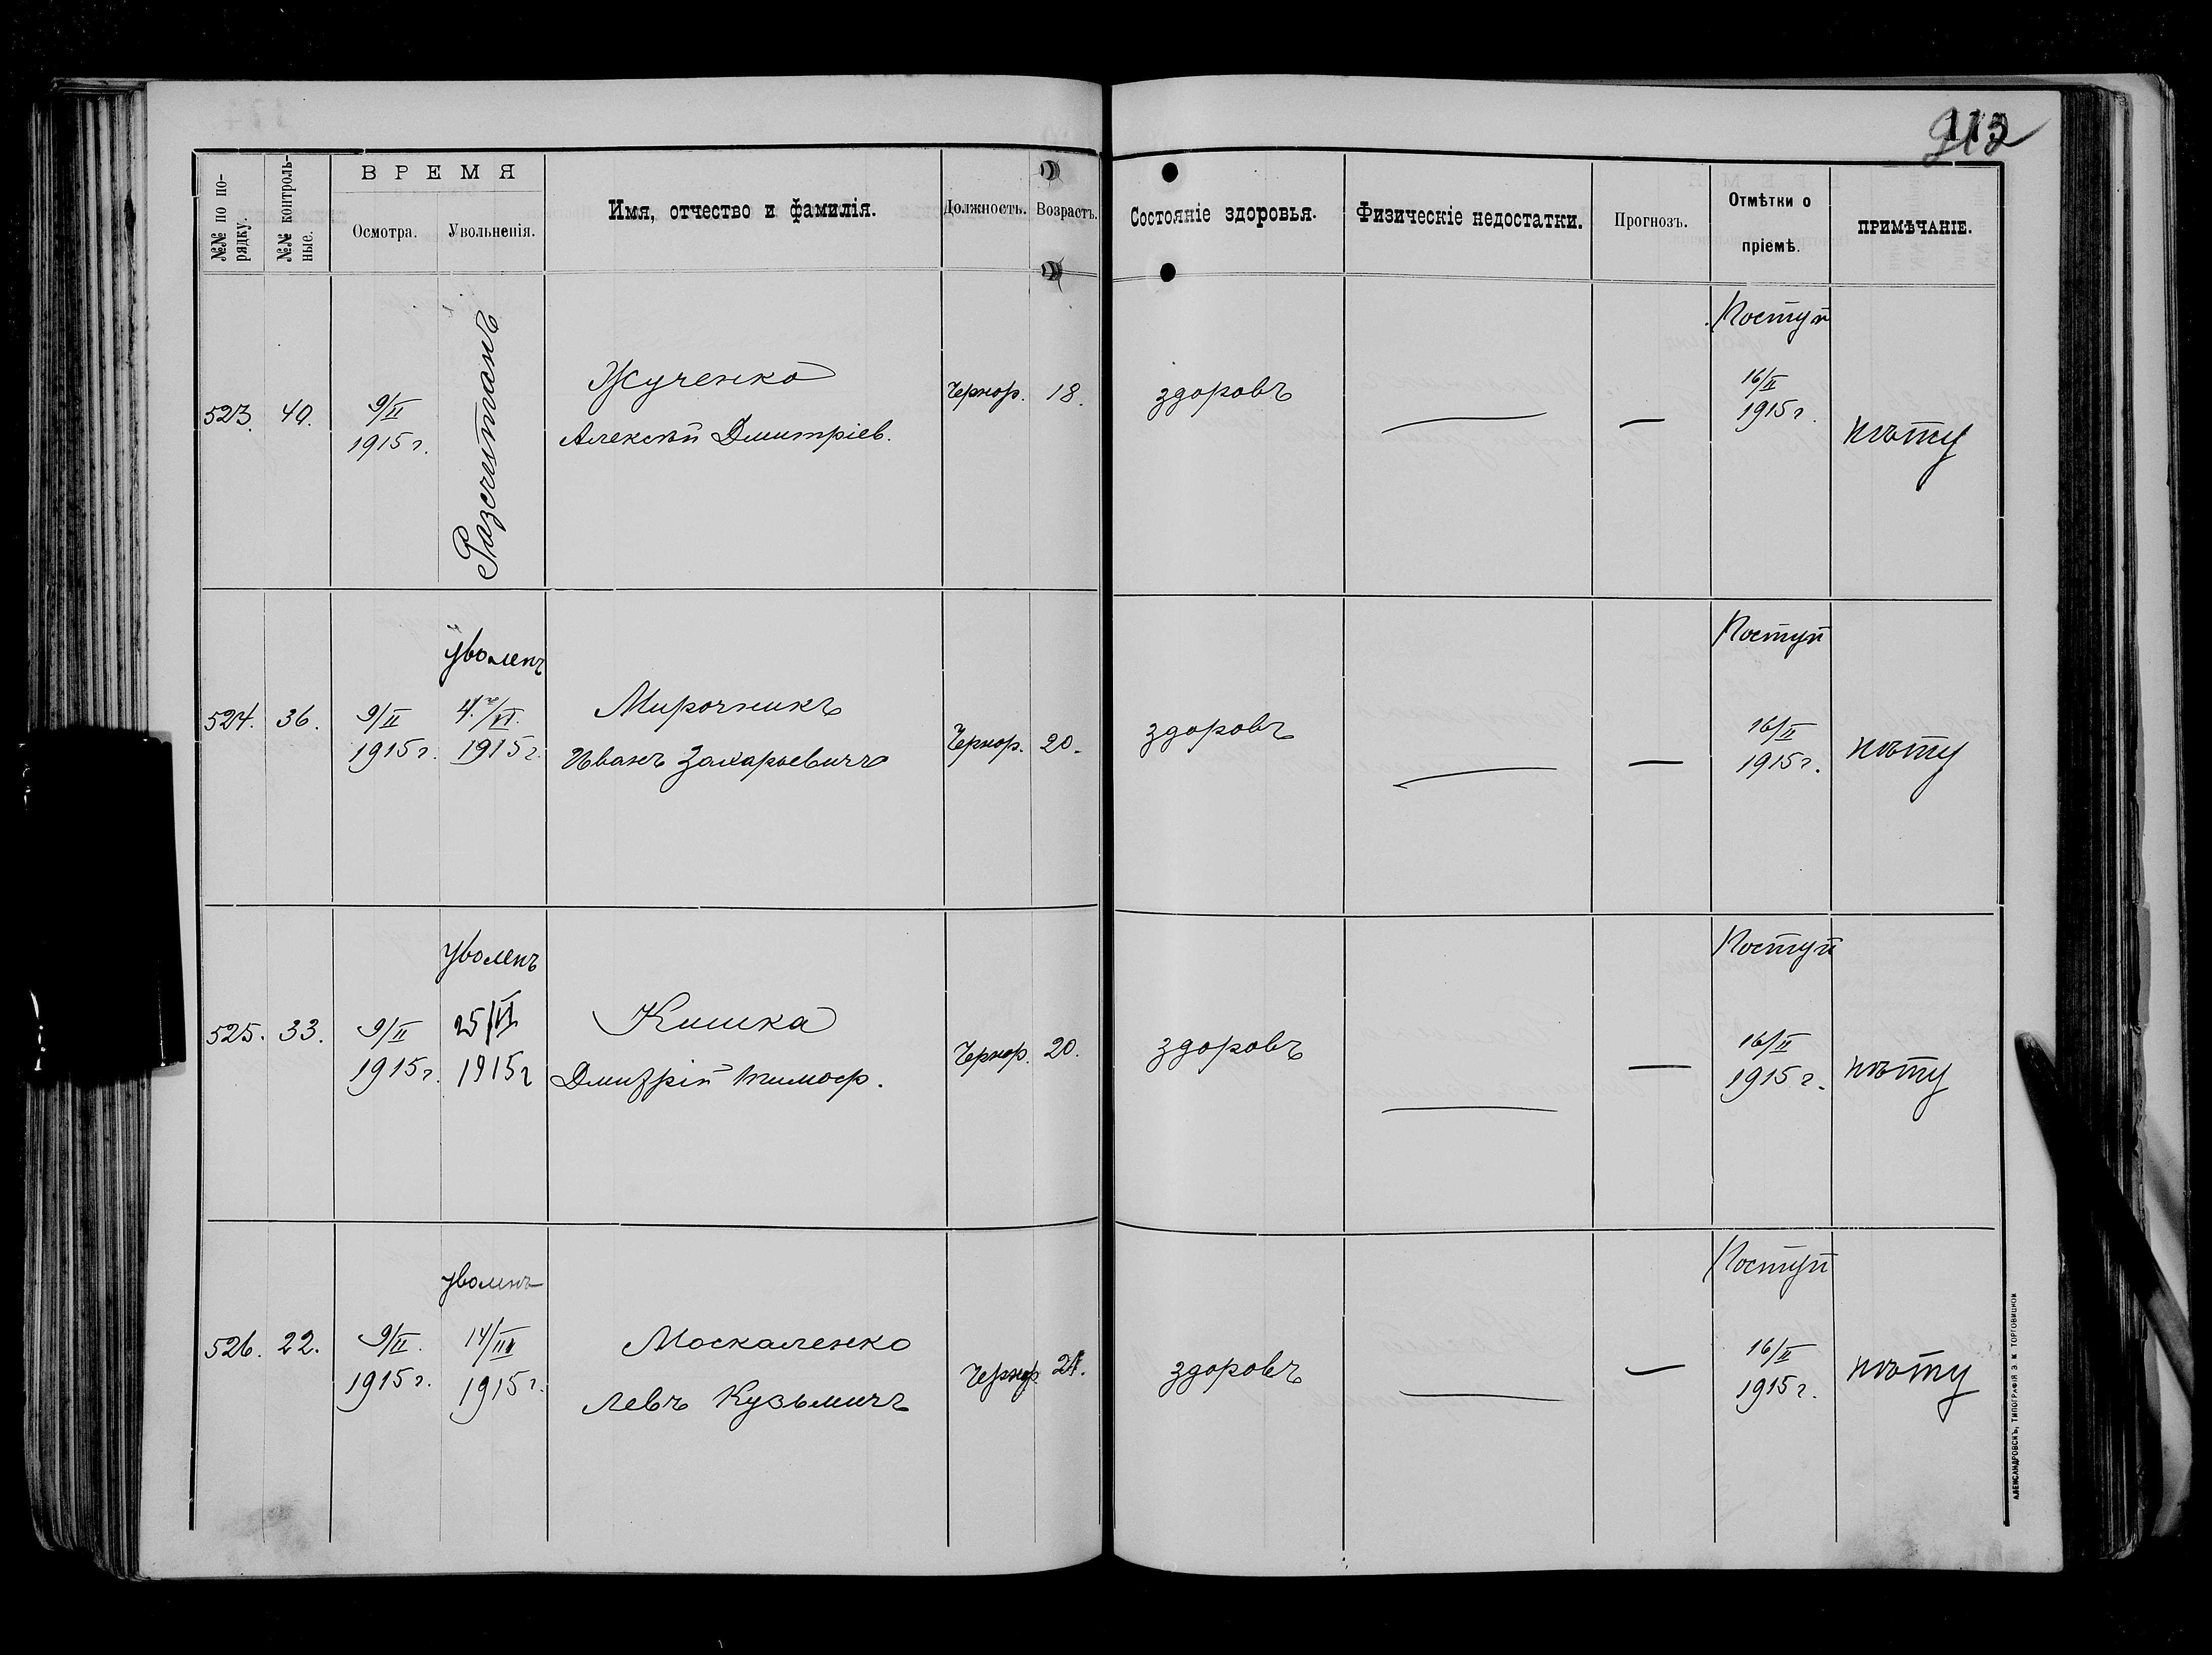 №№ по по-
рядку.
№№ контроль-
ные.
ВРЕМЯ
Осмотра.
Увольненія.
Имя, отчество и фамилія.
Должность.
Возрастъ.
Состояніе здоровья.
Физическіе недостатки.
Прогнозъ.
Отмѣтки о
пріемѣ.
ПРИМѢЧАНІЕ.
523. 40.
9/II
1915 г.
Разсчитанъ
Жученко
Алексѣй Дмитріев.
Чернор. 18.
здоровъ
—
—
Поступ
16/II
1915 г.
нѣту
524. 36.
9/II
1915 г.
уволенъ
4.го/VI.
1915 г.
Мирочникъ
Иванъ Захарьевичъ
Чернор. 20.
здоровъ
—
—
Поступ
16/II
1915 г.
нѣту
525. 33.
9/II
1915 г.
уволенъ
25/VI
1915 г
Кишка
Дмитрій Тимоф.
Чернор. 20.
здоровъ
—
—
Поступ
16/II
1915 г.
нѣту
526. 22.
9/II.
1915 г.
уволенъ
14/III
1915 г.
Москаленко
Левъ Кузьмичъ
Чернор. 21.
здоровъ
—
—
Поступ
16/II
1915 г.
нѣту
АЛЕКСАНДРОВСКЪ, ТИПОГРАФІЯ Э. М. ТОРГОВИЦКОЙ